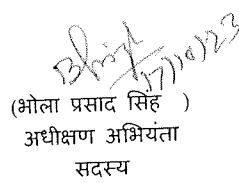 17/10/23
(भोला प्रसाद सिंह )
अधीक्षण अभियंता
सदस्य